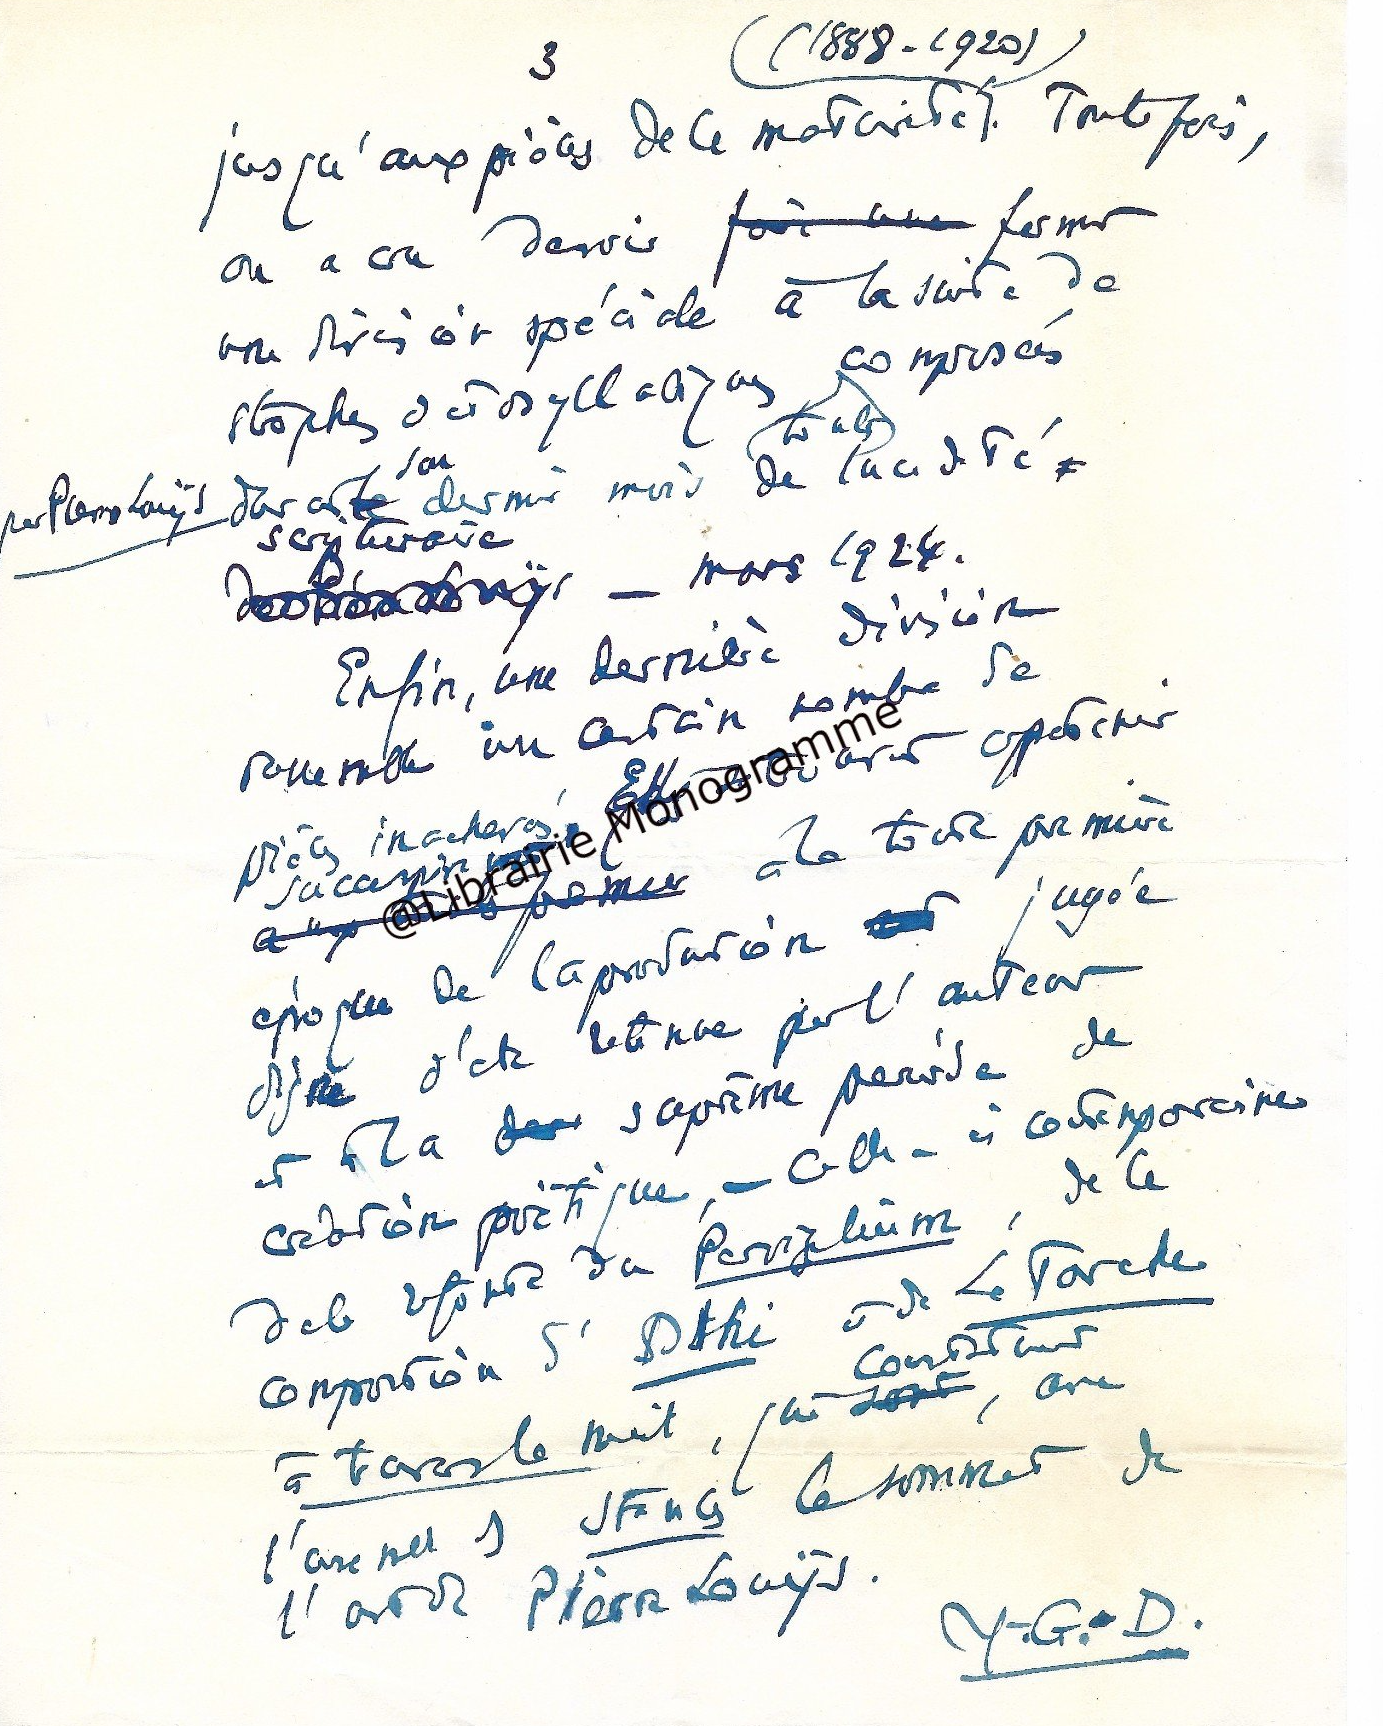 3
(1888-1920)
jusqu'aux pièces de la maturité). Toutefois,
on a cru devoir faire une former
une division spéciale à la suite de
strophes octosyllabiques composées
par Pierre Louÿs durant le son dernier mois de (totale) lucidité
scripturaire
de Pierre Louÿs — mars 1924.
Enfin, une dernière division
rassemble un certain nombre de
pièces inachevées. Elles appartenir
aux premier à la toute première
époque de la production et jugée
digne d'être retenue par l'auteur
et à la der suprême période de
création poétique, — celle-ci contemporaine
de la refonte du Pervigilium, de la
composition d'Psyché et de La Torche
à travers la nuit, qui sont constituent, avec
l'avenue d' Stances le sommet de
l'art de Pierre Louÿs.
Y.-G. Le D.
@Librairie Monogramme